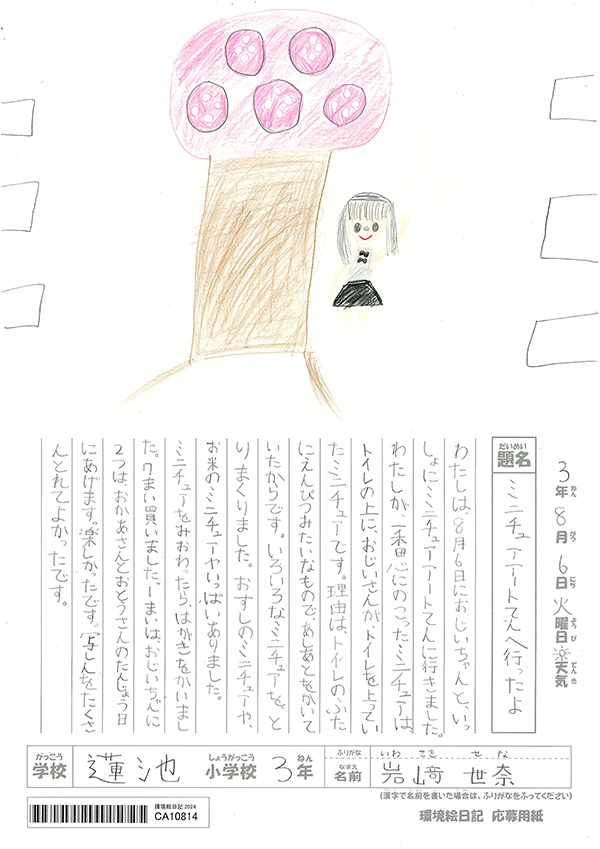 3年8月6日火曜日☀天気
ねん がつ にち ようび てんき
だいめい
題名
ミニチュアアートてんへ行ったよ
わたしは、8月6日におじいちゃんと、いっ
しょにミニチューアアートてんに行きました。
わたしが、一番心にのこったミニチューは、
トイレの上に、おじいさんが、トイレを上ってい
たミニチューです。理由は、トイレのふた
にえんぴつみたいなもので、あしあとをかいて
いたからです。いろいろなミニチューを、と
りまくりました。おすしのミニチューや、
お米のミニチューやいっぱいありました。
ミニチューをみおわったら、はがきをかいまし
た。7まい買いました。1まいは、おじいちゃんに
2つは、おかあさんとおとうさんのたんじょう日
にあげます。楽しかったです。写しんをたくさ
んとれてよかったです。
がっこう しょうがっこう ねん ふりがな いわ さき せ な
学校 蓮池 小学校 3年 なまえ 名前 岩﨑 世奈
(漢字で名前を書いた場合は、ふりがなをふってください)
環境絵日記2024
CA10814
環境絵日記 応募用紙